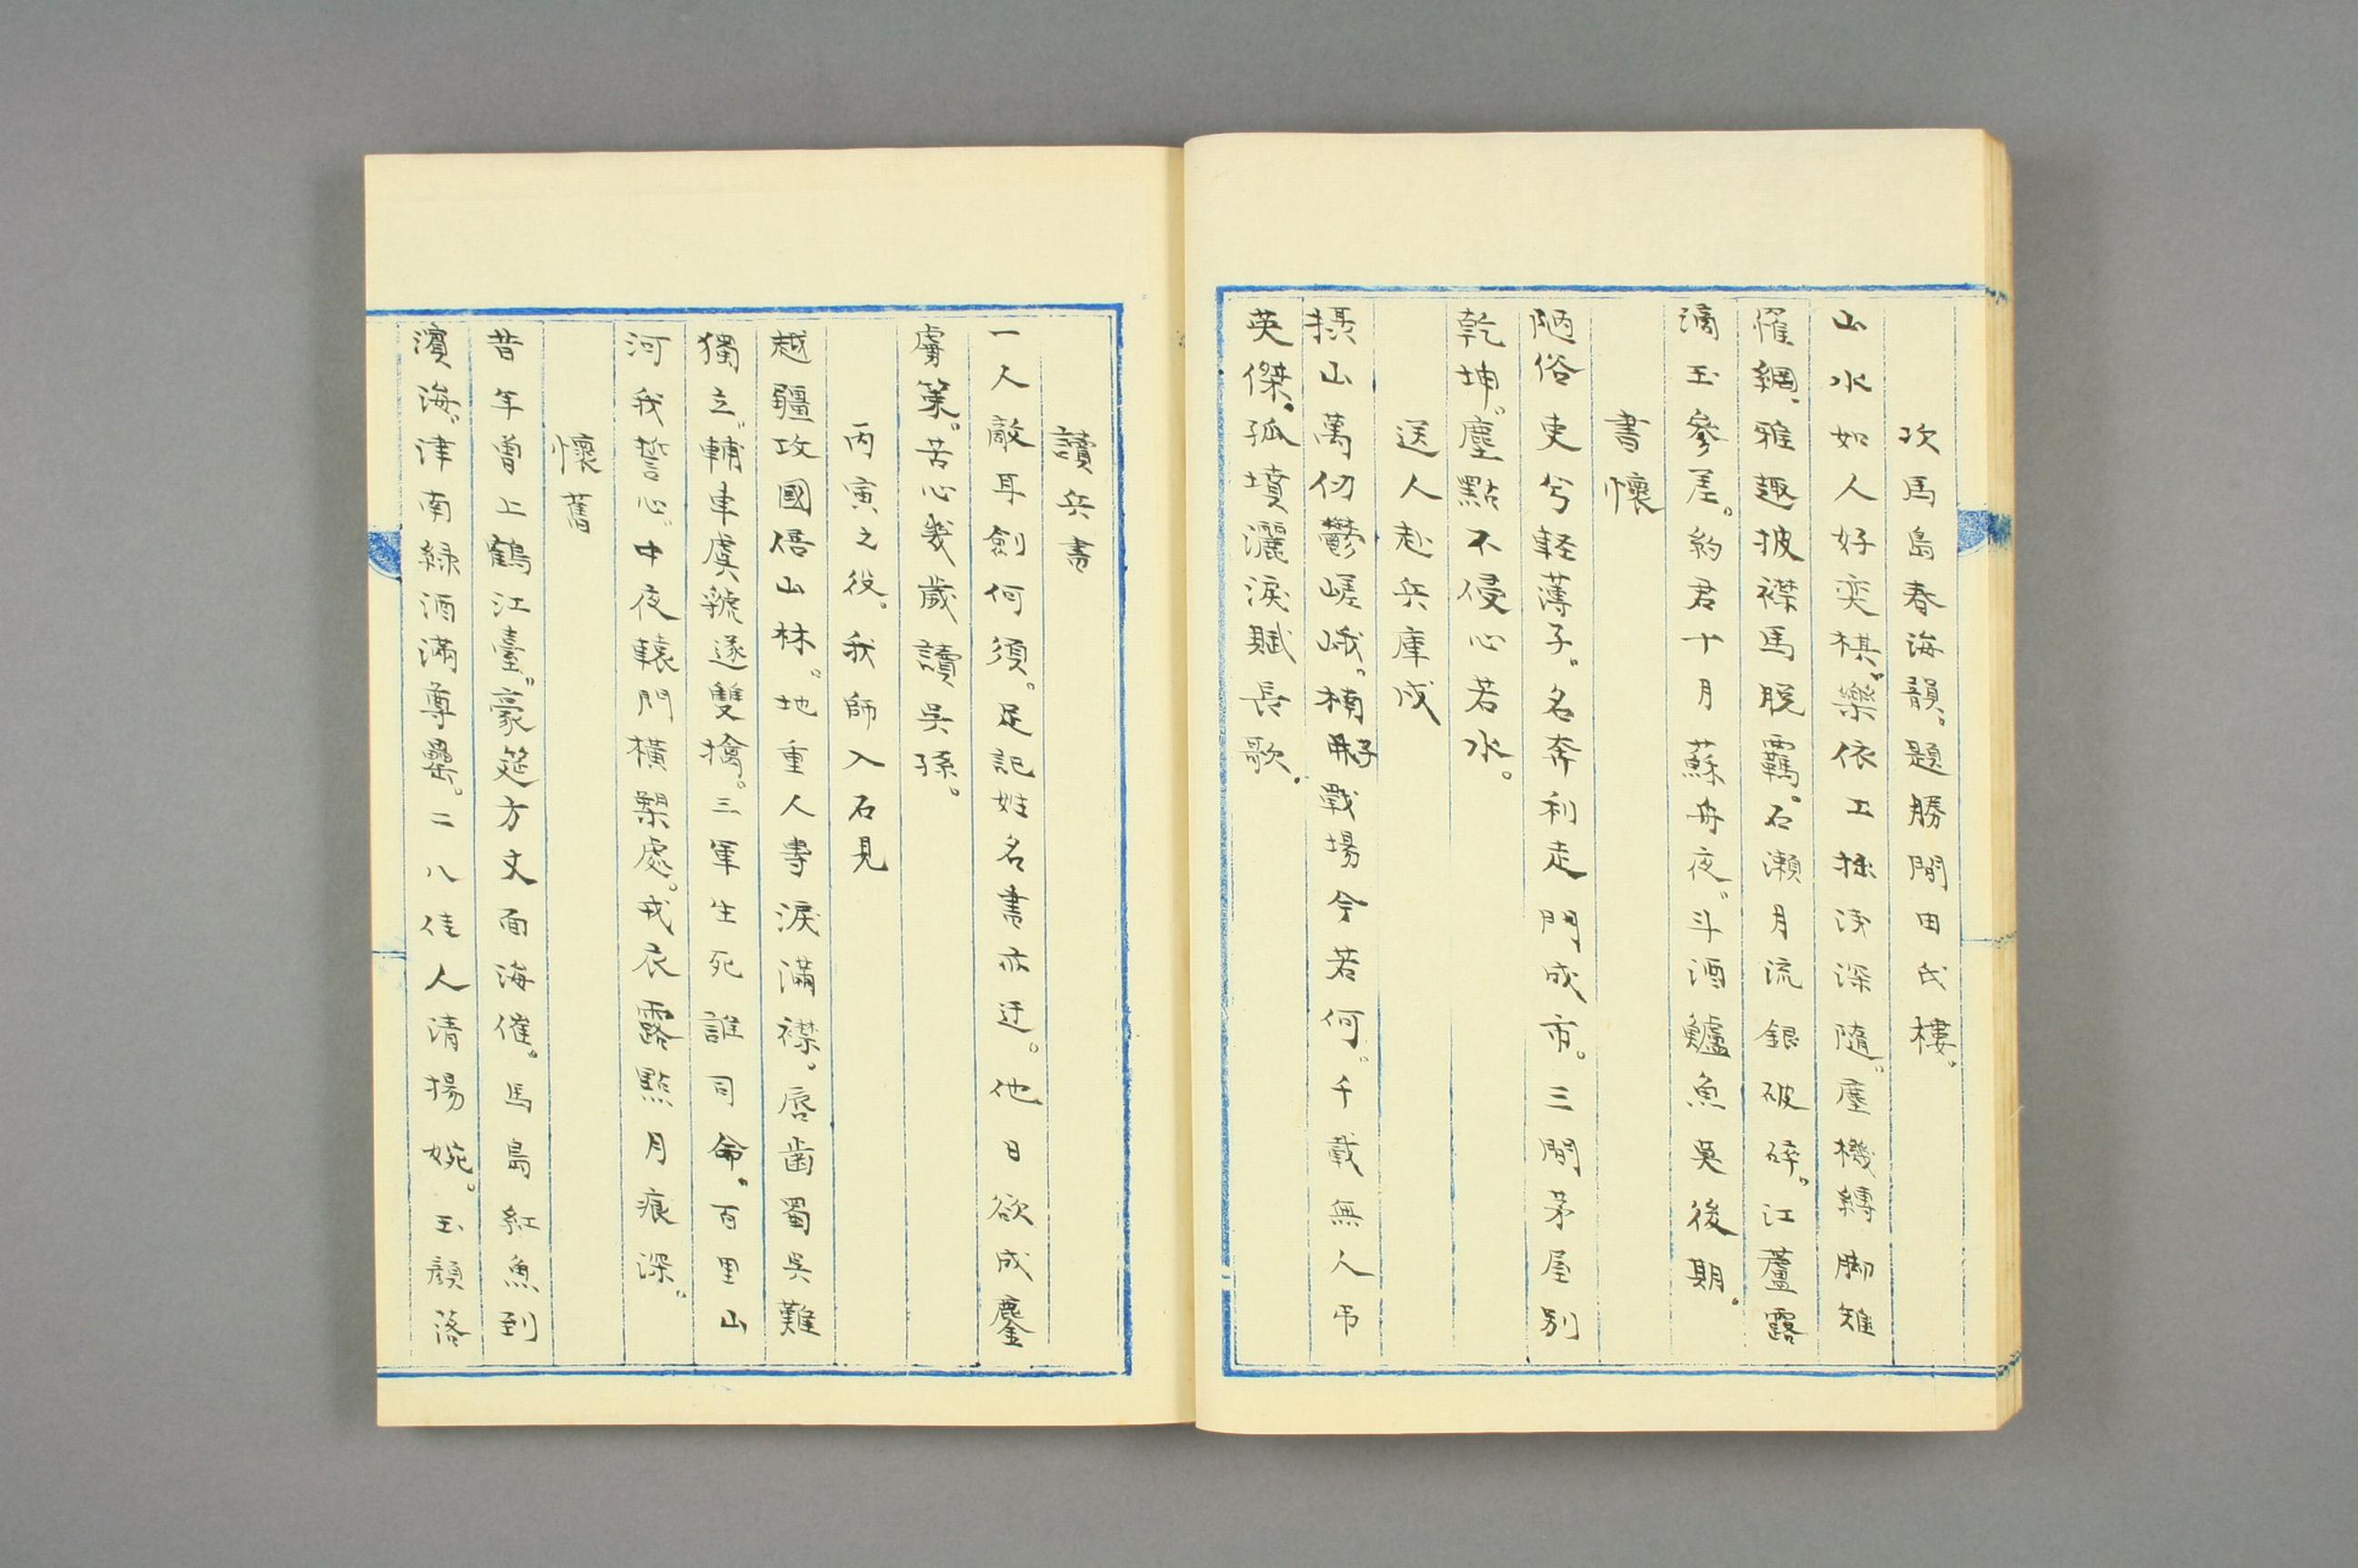 次馬島春海韻。題勝間田氏樓。
山水如人好奕棋。樂依工拙淺深隨。塵機轉脚雉
罹網。雅趣披襟馬脱羈。石瀬月流銀破碎。江蘆露
滴玉參差。約君十月蘇舟夜。斗酒鱸魚莫後期。
書懷
陋俗吏兮軽薄子。名奔利走門成市。三間茅屋別
乾坤。塵點不侵心若水。
送人赴兵庫戍
摂山萬仞鬱嵯峨。楠子戰場今若何。千載無人弔
英傑。孤墳灑淚賦長歌。
讀兵書
一人敵耳劍何須。足記姓名書亦迂。他日欲成鏖
虜策。苦心幾歲讀吳孫。
丙寅之役。我師入石見
越疆攻國倍山林。地重人壽淚滿襟。唇歯蜀吳難
獨立。輔車虞虢遂雙擒。三軍生死誰司命。百里山
河我誓心。中夜轅門橫槊處。戎衣露點月痕深。
懷舊
昔年曽上鶴江臺。豪筵方丈面海催。馬島紅魚到
濱海。津南緑酒滿尊罍。二八佳人清揚婉。玉顔落